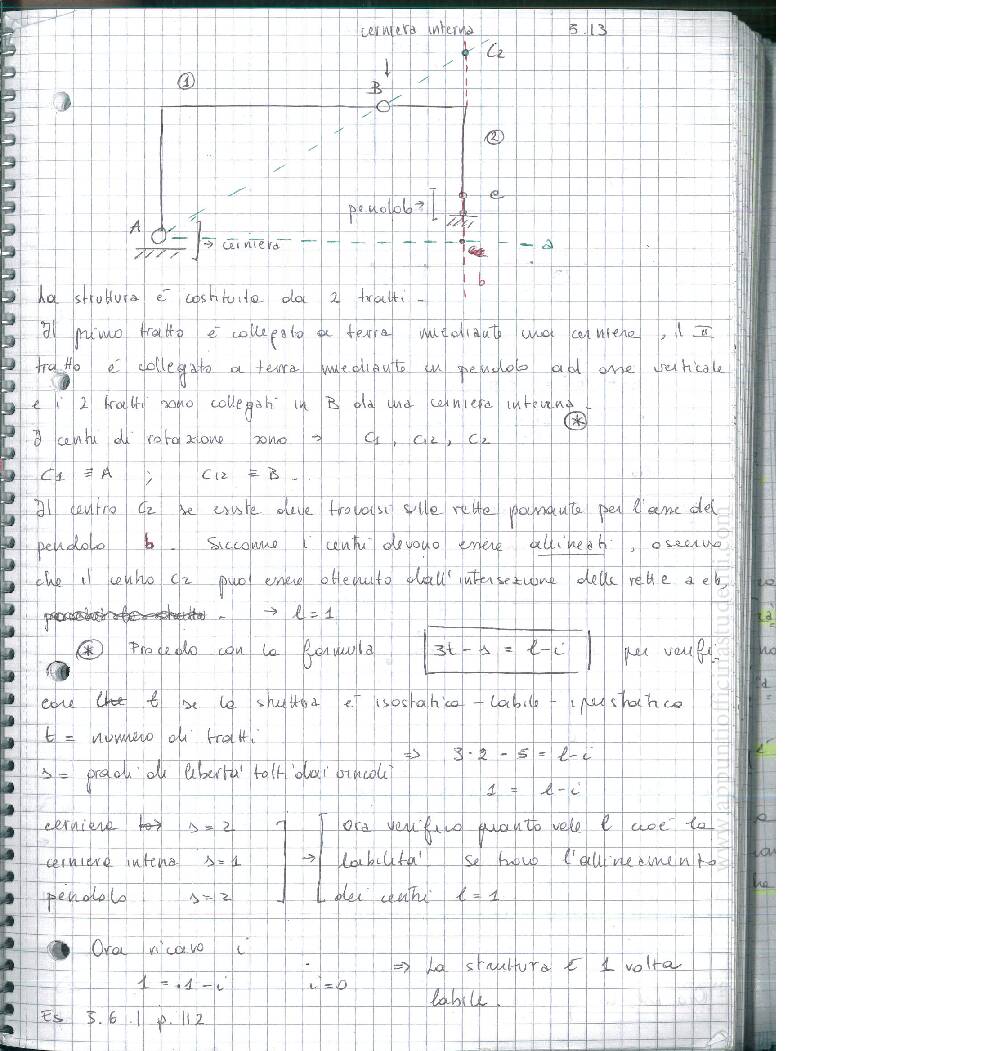 cerniera interna 5.13
C2
B
1
2
pendolo
e
A
cerniera
a
b
La struttura é costituita da 2 tratti -
Il primo tratto é collegato a terra mediante una cerniera, il II
tratto é collegato a terra mediante un pendolo ad asse verticale
e i 2 tratti sono collegati in B da una cerniera interna.
I centri di rotazione sono → C1, C12, C2
*
C1 ≡ A ; C12 ≡ B -
Il centro C2 se esiste deve trovarsi sulla retta passante per l'asse del
pendolo b. Siccome i centri devono essere allineati, osservo
che il centro C2 puo' essere ottenuto dall'intersezione delle rette a e b,
- → l=1
* Procedo con la formula 3t - s = l-i per verifi
care se la struttura e' isostatica - labile - iperstatica
t = numero di tratti
s = gradi di liberta' tolti dai vincoli
⇒ 3·2 - 5 = l-i
1 = l-i
cerniera s=2
cerniera interna s=1
pendolo s=2
→ Ora verifico quanto vale l cioé la
labilita' se trovo l'allineamento
dei centri l=1
Ora ricavo i
1 = 1-i i=0
⇒ La struttura é 1 volta
labile.
Es 3.6.1 p.112
www.appuntiofficinastudenti.com